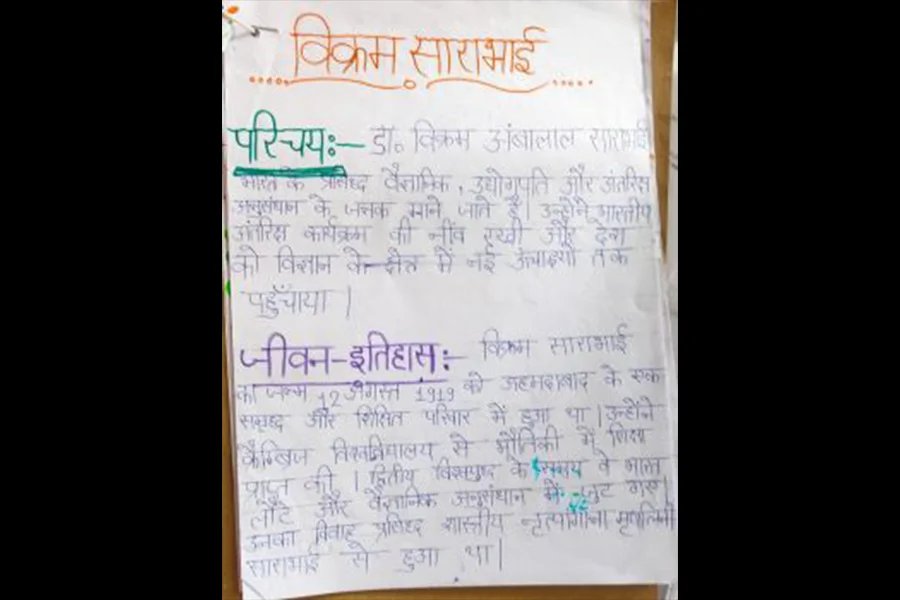 विक्रम साराभाई
परिचय:- डा. विक्रम अंबालाल साराभाई
भारत के प्रसिध्द वैज्ञानिक, उद्योगपति और अंतरिक्ष
अनुसंधान के जनक माने जाते है। उन्होंने भारतीय
अंतरिक्ष कार्यक्रम की नींव रखी और देश
को विज्ञान के क्षेत्र में नई ऊंचाइयों तक
पहुँचाया।
जीवन-इतिहास:- विक्रम साराभाई
का जन्म 12 अगस्त 1919 को अहमदाबाद के एक
समृध्द और शिक्षित परिवार में हुआ था। उन्होंने
कैम्ब्रिज विश्वविद्यालय से भौतिकी में शिक्षा
प्राप्त की। द्वितीय विश्वयुद्ध के समय वे भारत
लौटे और वैज्ञानिक अनुसंधान में जुट गए।
उनका विवाह प्रसिध्द शास्त्रीय नृत्यांगना मृणालिनी
साराभाई से हुआ था।